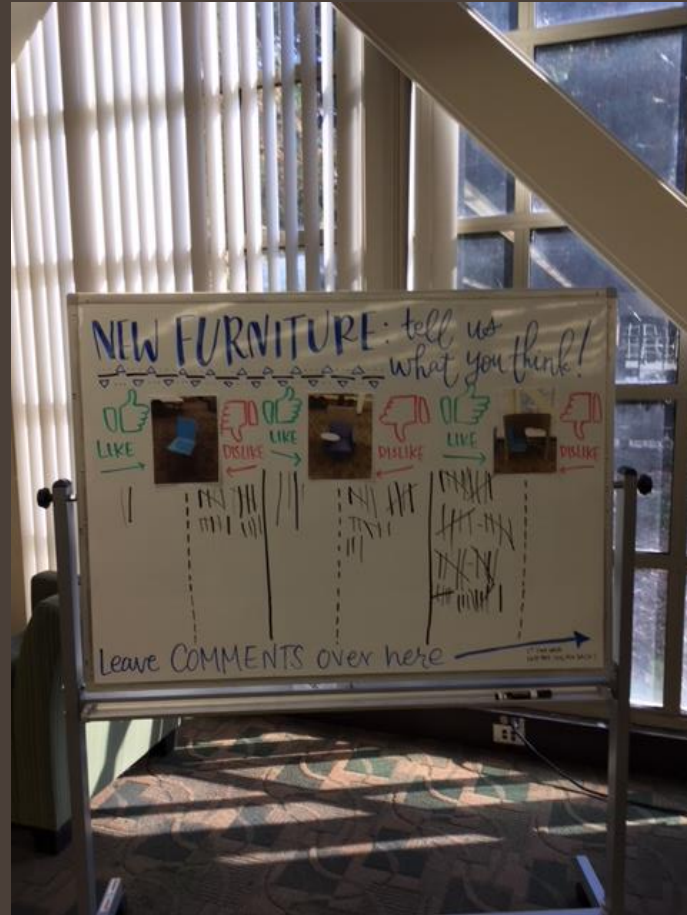 NEW FURNITURE: tell us
what you think!
LIKE DISLIKE LIKE DISLIKE LIKE DISLIKE
Leave COMMENTS over here